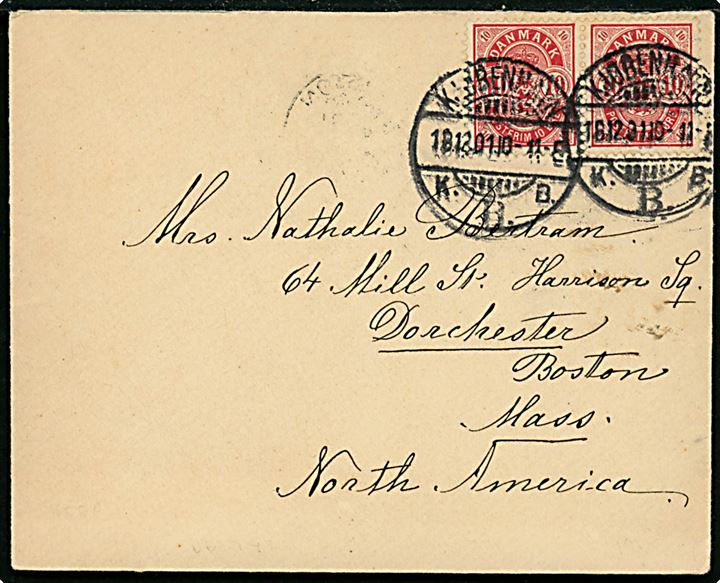 DANMARK DANMARK
10 10 10 10
KJØBENHAVN KJØBENHAVN
18.12.01.10-11-F. 18.12.01.10-11-F.
K. B. K. B.
B. B.
Mrs. Nathalie Bertram.
64 Mill St. Harrison Sq.
Dorchester
Boston
Mass.
North America.